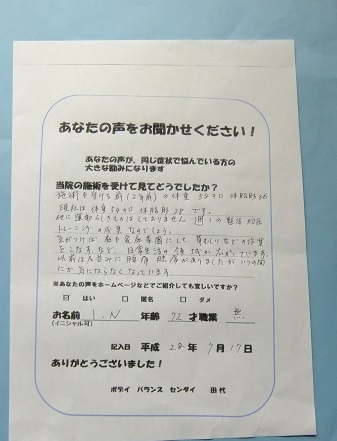 あなたの声をお聞かせください！
あなたの声が、同じ症状で悩んでいる方の
大きな励みになります
当院の施術を受けて見てどうでしたか？
施術を受ける前(2年前)の体重 58キロ 体脂肪36
現在は体重54キロ 体脂肪28です。
他に運動らしきものはしておりません 週1の整体加圧
トレーニングの成果なのでしょう。
気がつけば 庭を家庭菜園にして、草むしりなどの作業
をこなすなど、日常生活の領域が広がっています。
以前は人並みに腰痛 膝痛がありましたがいつの間
にか気にならなくなっています。
※あなたの声をホームページなどでご紹介しても宜しいですか？
☑ はい □ 匿名 □ ダメ
お名前 I.N 年齢 72 才 職業 無
(イニシャル可)
記入日 平成 28年 7月17日
ありがとうございました！
ボディ バランス センダイ 田代